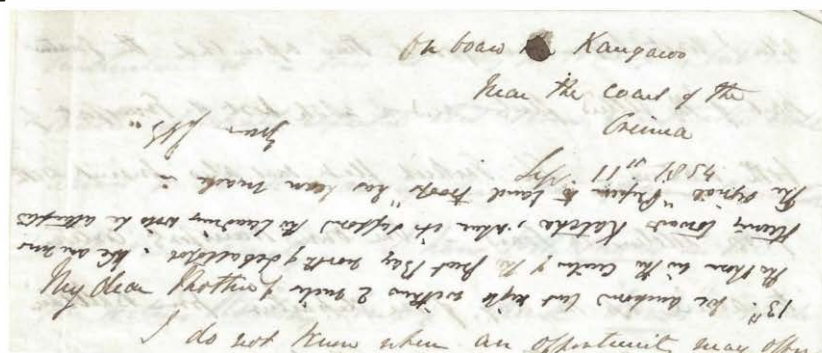 On board Kangaroo
Near the coast of the
Crimea
My dear Mother
I do not know when an opportunity may offer
13th. We anchored last night within 2 miles of
the shore in the Center of the Great Bay north of Sebastopol. We are now
steering towards Katcha, where it is supposed the Landing will be attempted
The signal "Prepare to Land Troops" has been made -
11 1854